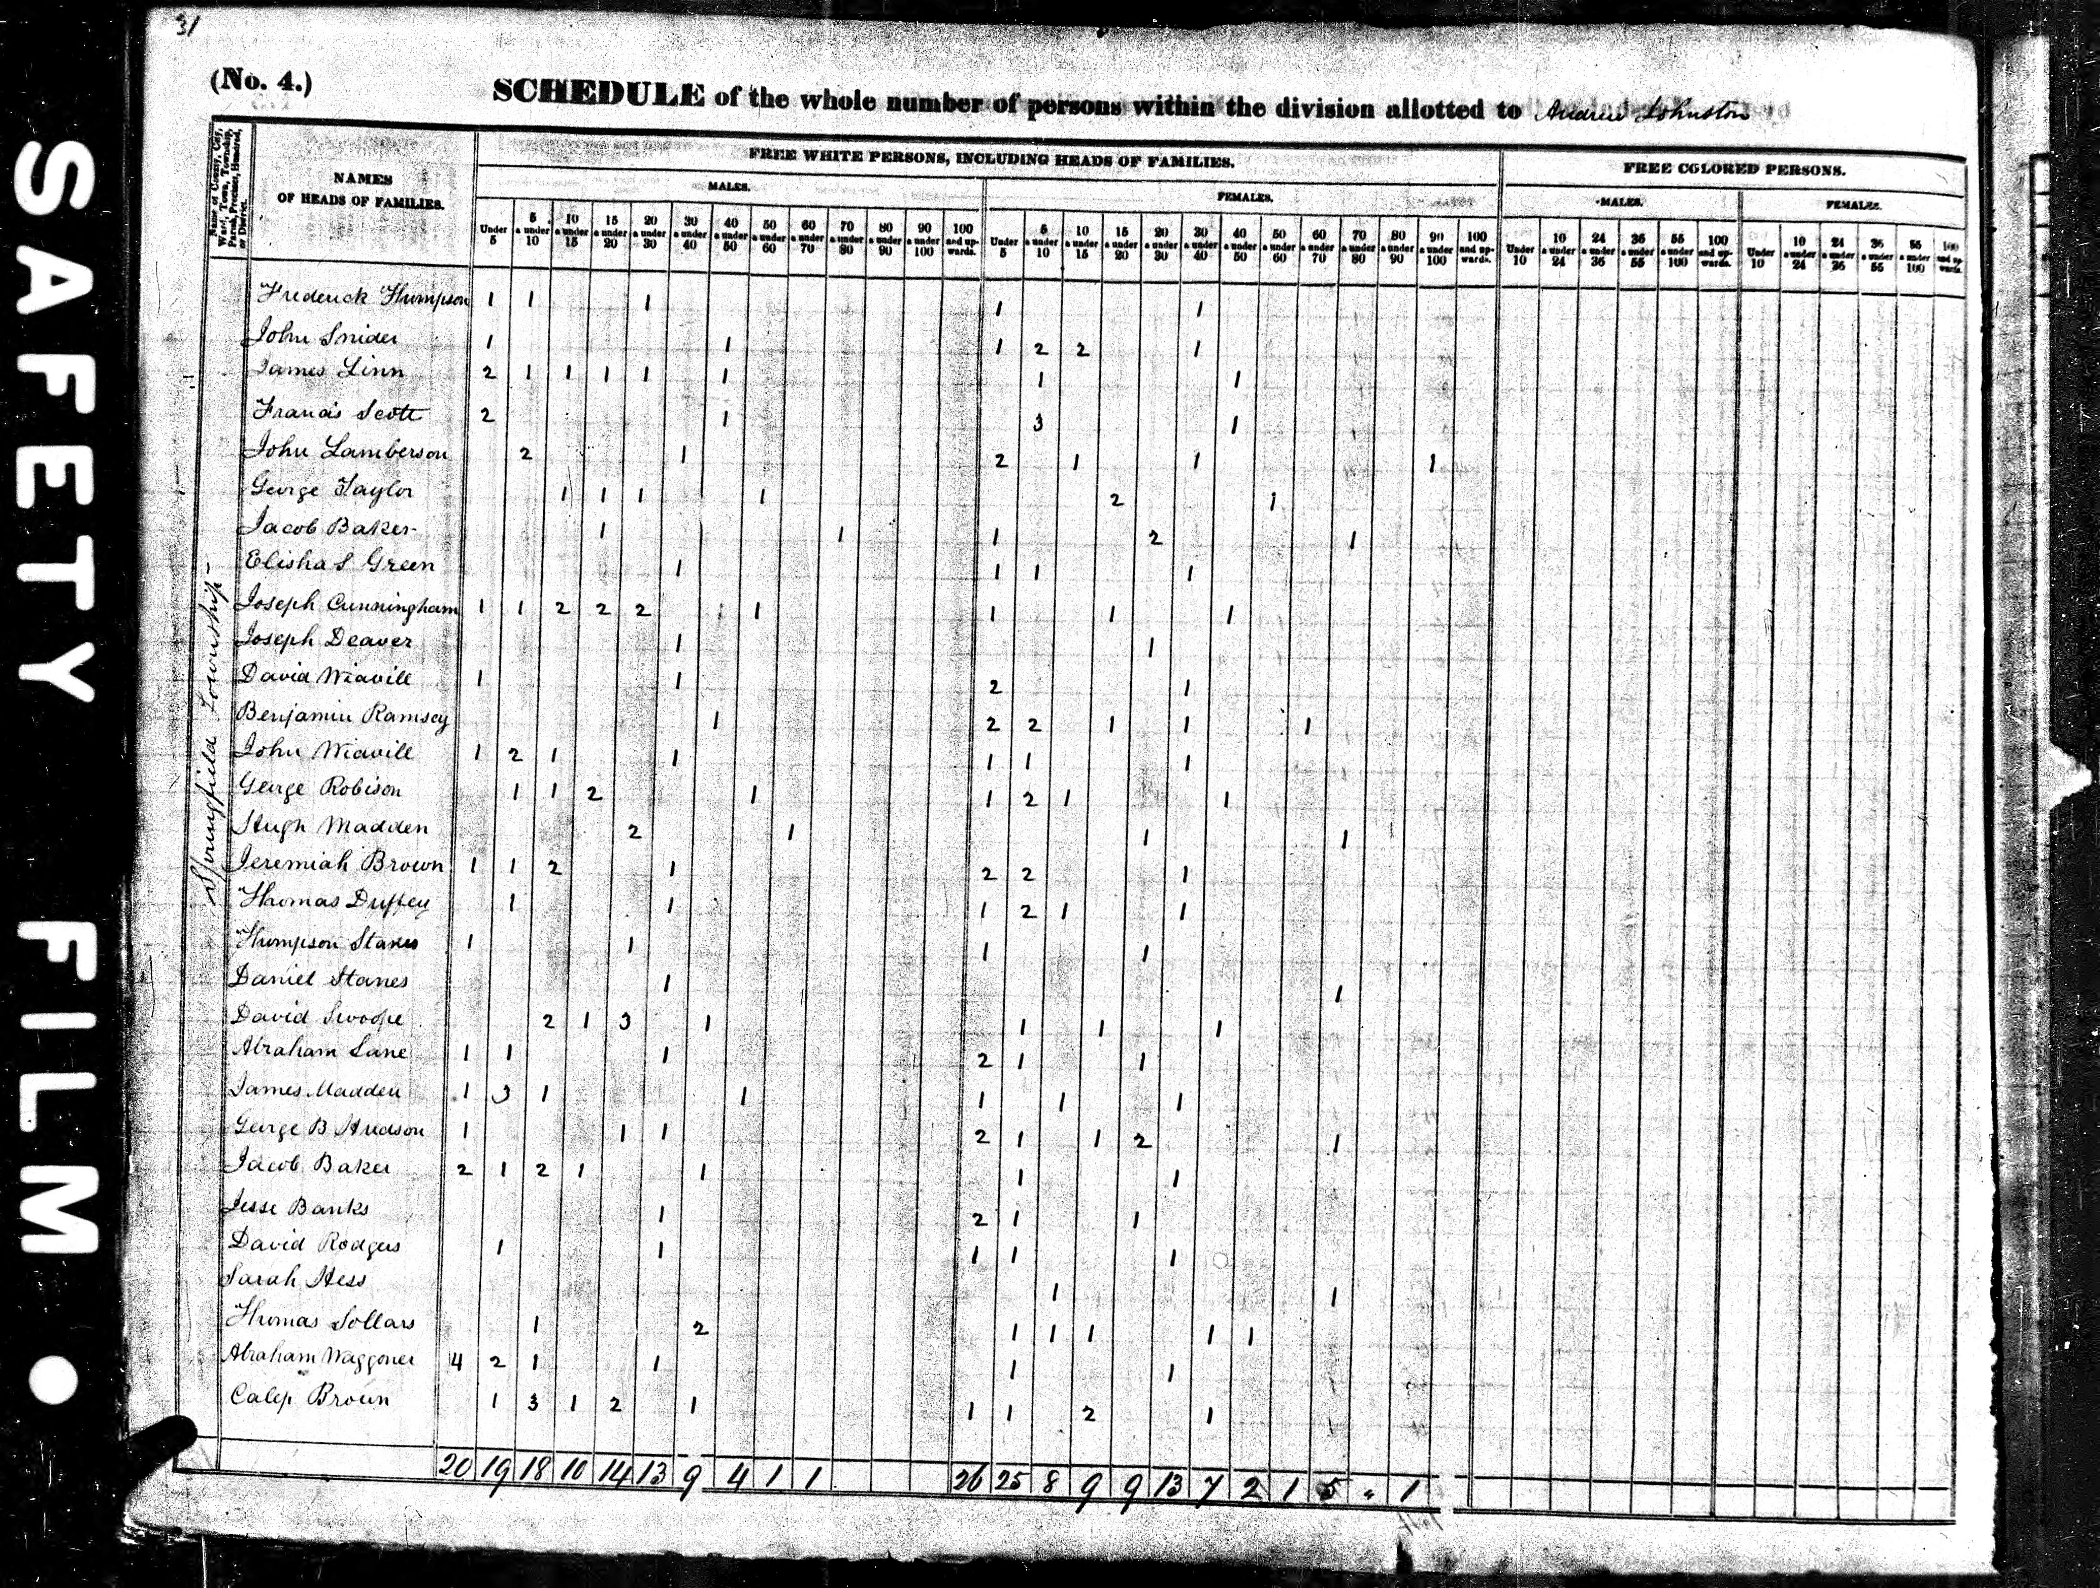 SAFETY FILM
31
(No. 4.)
SCHEDULE of the whole number of persons within the division allotted to Andrew Johnston
Name of County, City, Ward, Town, Township, Parish, Precinct, Hundred, or District.
NAMES
OF HEADS OF FAMILIES.
FREE WHITE PERSONS, INCLUDING HEADS OF FAMILIES.
FREE COLORED PERSONS.
MALES. FEMALES. MALES. FEMALES.
Under 5 | 5 & under 10 | 10 & under 15 | 15 & under 20 | 20 & under 30 | 30 & under 40 | 40 & under 50 | 50 & under 60 | 60 & under 70 | 70 & under 80 | 80 & under 90 | 90 & under 100 | 100 and upwards.
Under 5 | 5 & under 10 | 10 & under 15 | 15 & under 20 | 20 & under 30 | 30 & under 40 | 40 & under 50 | 50 & under 60 | 60 & under 70 | 70 & under 80 | 80 & under 90 | 90 & under 100 | 100 and upwards.
Under 10 | 10 & under 24 | 24 & under 36 | 36 & under 55 | 55 & under 100 | 100 and upwards.
Under 10 | 10 & under 24 | 24 & under 36 | 36 & under 55 | 55 & under 100 | 100 and upwards.
Springfield Township
Frederick Thompson 1 1 1 1 1
John Snider 1 1 1 2 2 1
James Linn 2 1 1 1 1 1 1 1
Francis Scott 2 1 3 1
John Lamberson 2 1 2 1 1 1
George Taylor 1 1 1 1 2 1
Jacob Baker 1 1 1 2 1
Elisha S Green 1 1 1 1
Joseph Cunningham 1 1 2 2 2 1 1 1 1
Joseph Deaver 1 1
David Weavill 1 1 2 1
Benjamin Ramsey 1 2 2 1 1 1
John Weavill 1 2 1 1 1 1 1
George Robison 1 1 2 1 1 2 1 1
Hugh Madden 2 1 1 1
Jeremiah Brown 1 1 2 1 2 2 1
Thomas Duffey 1 1 1 2 1 1
Thompson Stanes 1 1 1 1
Daniel Stanes 1 1
David Swoope 2 1 3 1 1 1 1
Abraham Lane 1 1 1 2 1 1
James Madden 1 3 1 1 1 1 1
George B Hudson 1 1 1 2 1 1 2 1
Jacob Baker 2 1 2 1 1 1 1
Jesse Banks 1 2 1 1
David Rodgers 1 1 1 1 1
Sarah Hess 1 1
Thomas Sollars 1 2 1 1 1 1 1
Abraham Waggoner 4 2 1 1 1 1
Calep Brown 1 3 1 2 1 1 1 2 1
20 19 18 10 14 13 9 4 1 1 26 25 8 9 9 13 7 2 1 5 " 1